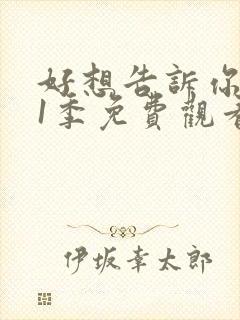 好想告訴你
1季免費觀看
伊坂幸太郎